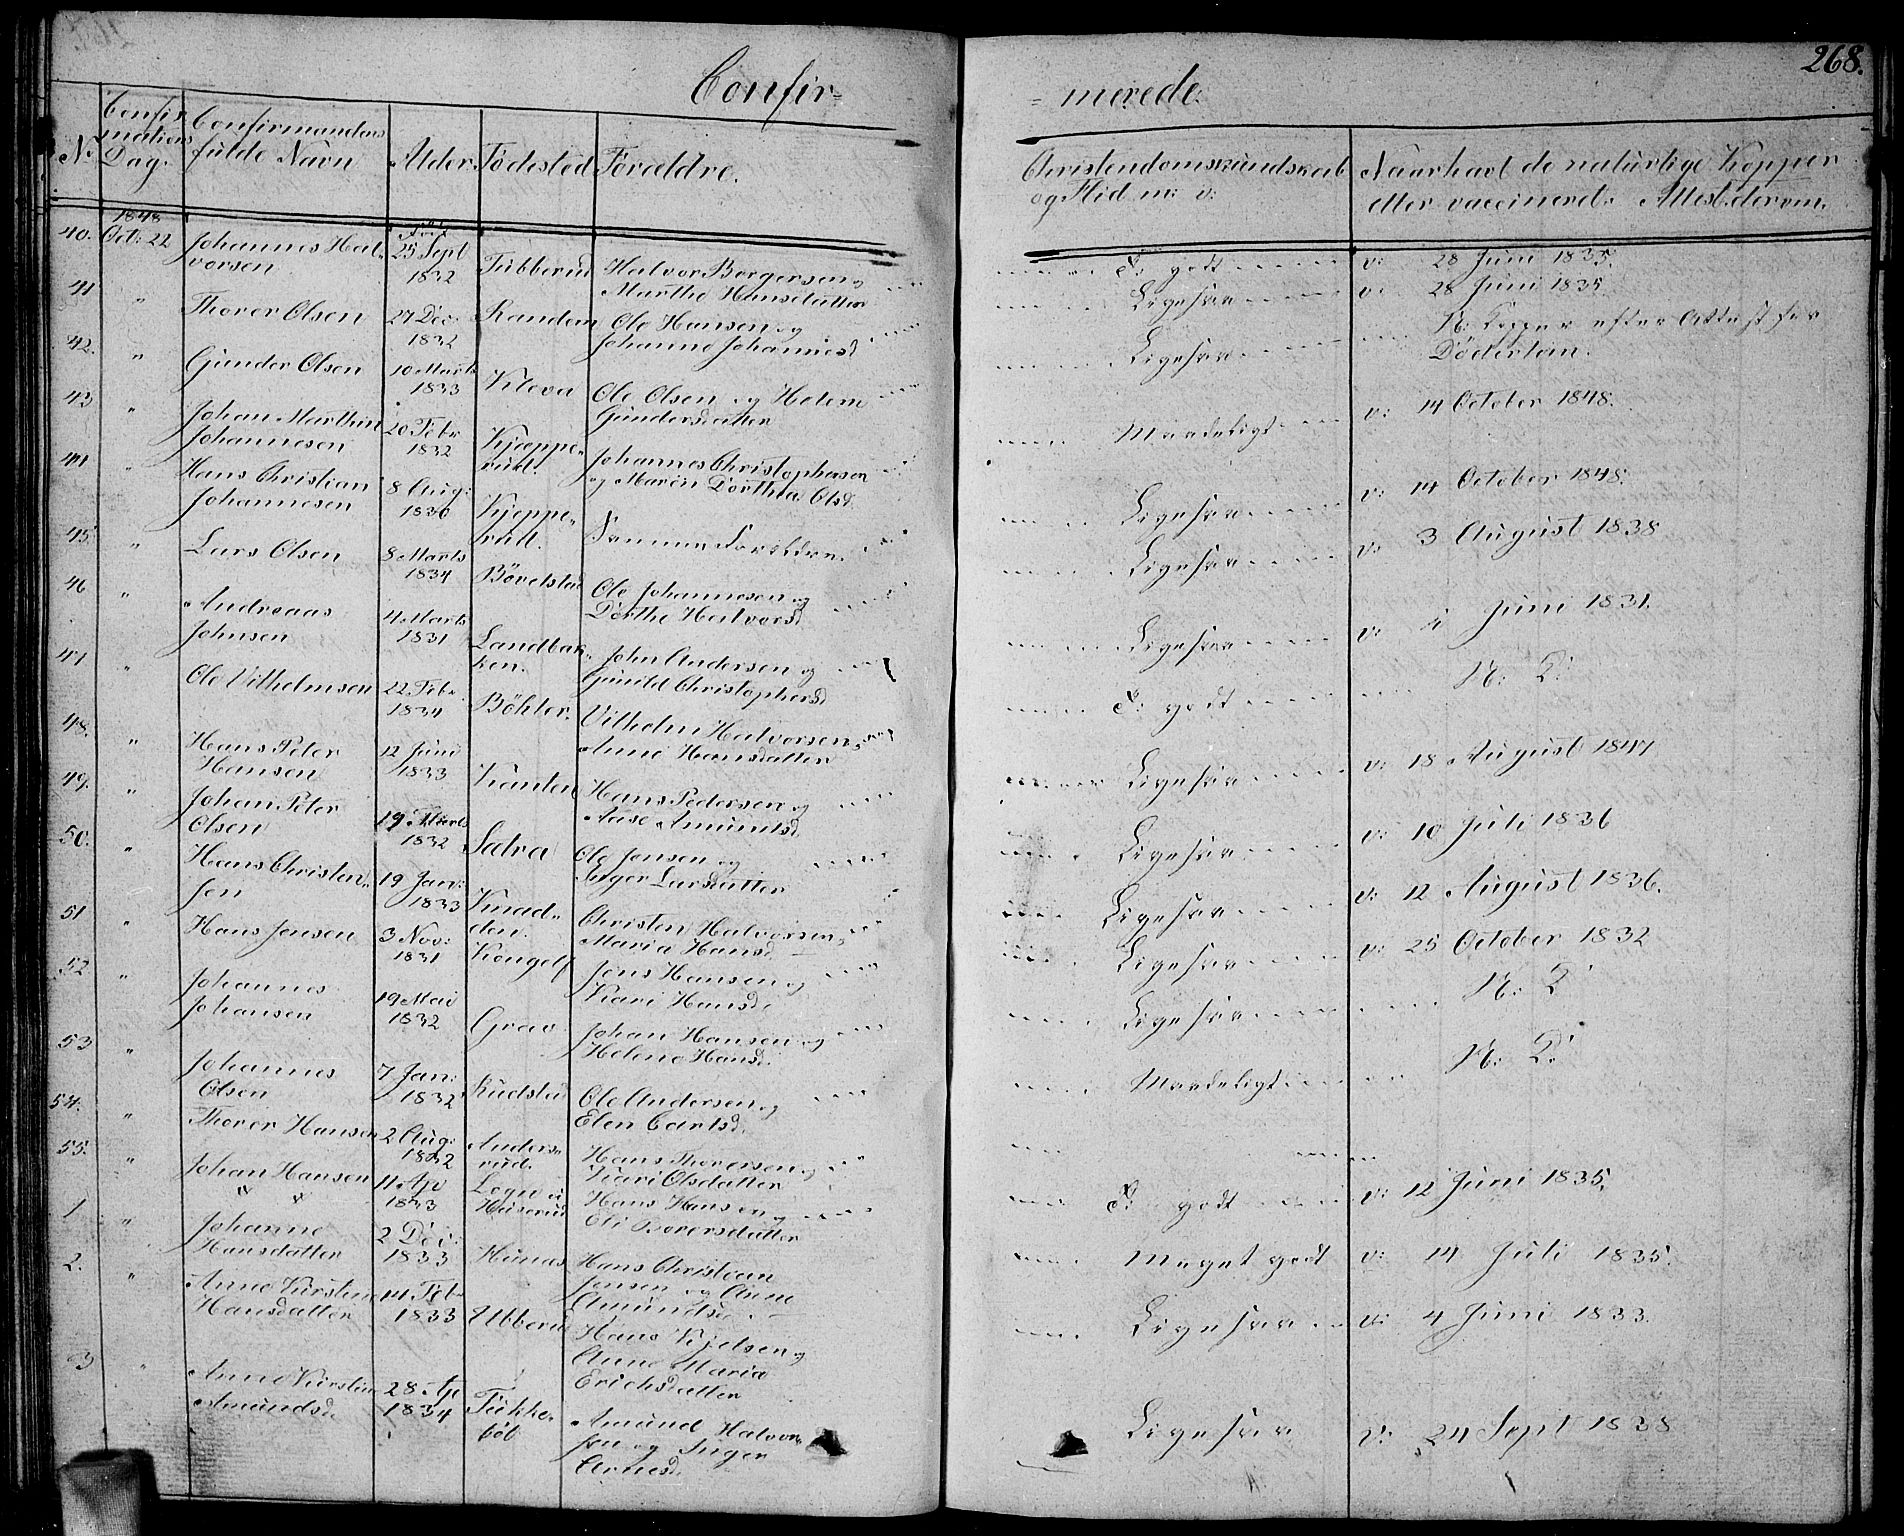 268.
Confir=
=merede.
No
Confir
mations
Dag.
Confirmandens
fulde Navn
Alder.
Fødested
Forældre.
Christendomskundskab
og Flid m: v:
Naar havt de naturlige Kopper
eller vaccineret. Attest derom.
40. 1848 Oct: 22 Johannes Hal-
vorsen 25 Sept
1832 Tubberud Halvor Borgersen og
Marthe Hansdatter T: godt v: 28 Juni 1835.
41 " Thorer Olsen 27 Dec
1832 Randem Ole Hansen og
Johanne Johannesd Ligesaa v: 28 Juni 1835.
42. " Gunder Olsen 10 Marts
1833 Kleva Ole Olsen og Helene
Gundersdatter Ligesaa N: Kopper efter Attest fra
Döderlein.
43 " Johan Marthin
Johannesen 20 Febr
1832 Kjæppe-
rud. Johannes Christophersen
og Maren Dorthea Olsd. Maadeligt v: 14 October 1848.
44 " Hans Christian
Johannesen 8 Aug:
1830 Kjeppe-
rud. Samme Forældre. Ligesaa v: 14 October 1848.
45. " Lars Olsen 8 Marts
1834 Bövelstad Ole Johannesen og
Dorthe Halvorsd Ligesaa v: 3 August 1838
46 " Andreas
Johnsen 4 Marts
1831 Landbak-
ken. John Andersen og
Gunild Christophersd Ligesaa v: 4 Juni 1831.
47 " Ole Vilhelmsen 22 Febr.
1834 Böhler. Vilhelm Halvorsen og
Anne Hansdatter T: godt N: K:
48. " Hans Peter
Hansen 12 Juni
1833 Tranten Hans Pedersen og
Aase Amundsd. Ligesaa v: 18 August 1847
49. " Johan Peter
Olsen 19 Marts
1832 Satra Ole Jensen og
Inger Larsdatter Ligesaa v: 10 Juli 1836
50. " Hans Christen-
sen 19 Jan:
1833 Knad-
den. Christen Halvorsen og
Maria Hansd. Ligesaa v: 12 August 1836.
51 " Hans Jensen 3 Nov:
1831 Kongelf Jens Hansen og
Kari Hansd. Ligesaa v: 25 October 1832
52 " Johannes
Johansen 19 Mai
1832 Grav Johan Hansen og
Helene Hansd. Ligesaa N: K
53 " Johannes
Olsen 7 Jan:
1832 Rudstad Ole Andersen og
Elen Carlsd. Maadeligt N: K:
54. " Thorer Hansen 2 Aug:
1832 Anders-
rud. Hans Thorersen og
Kari Olsdatter
55. " Johan Hansen 11 Ap
1833 Huserud Hans Hansen og
Eli Borersdatter T: godt v: 12 Juni 1835.
1 " Johanne
Hansdatter 2 Dec:
1833 Hunas Hans Christian
Jensen og Anne
Amundsd. Meget godt v: 14 Juli 1835.
2. " Anne Kirstine
Hansdatter 14 Feb
1833 Ubberud Hans Kjelsen og
Anne Maria
Erichsdatter Ligesaa v: 4 Juni 1833.
3 " Anne Kirstine
Amundsd. 28 Ap
1834 Tukke-
böl Amund Halvor-
sen og Inger
Arnesd. Ligesaa v: 24 Sept 1838